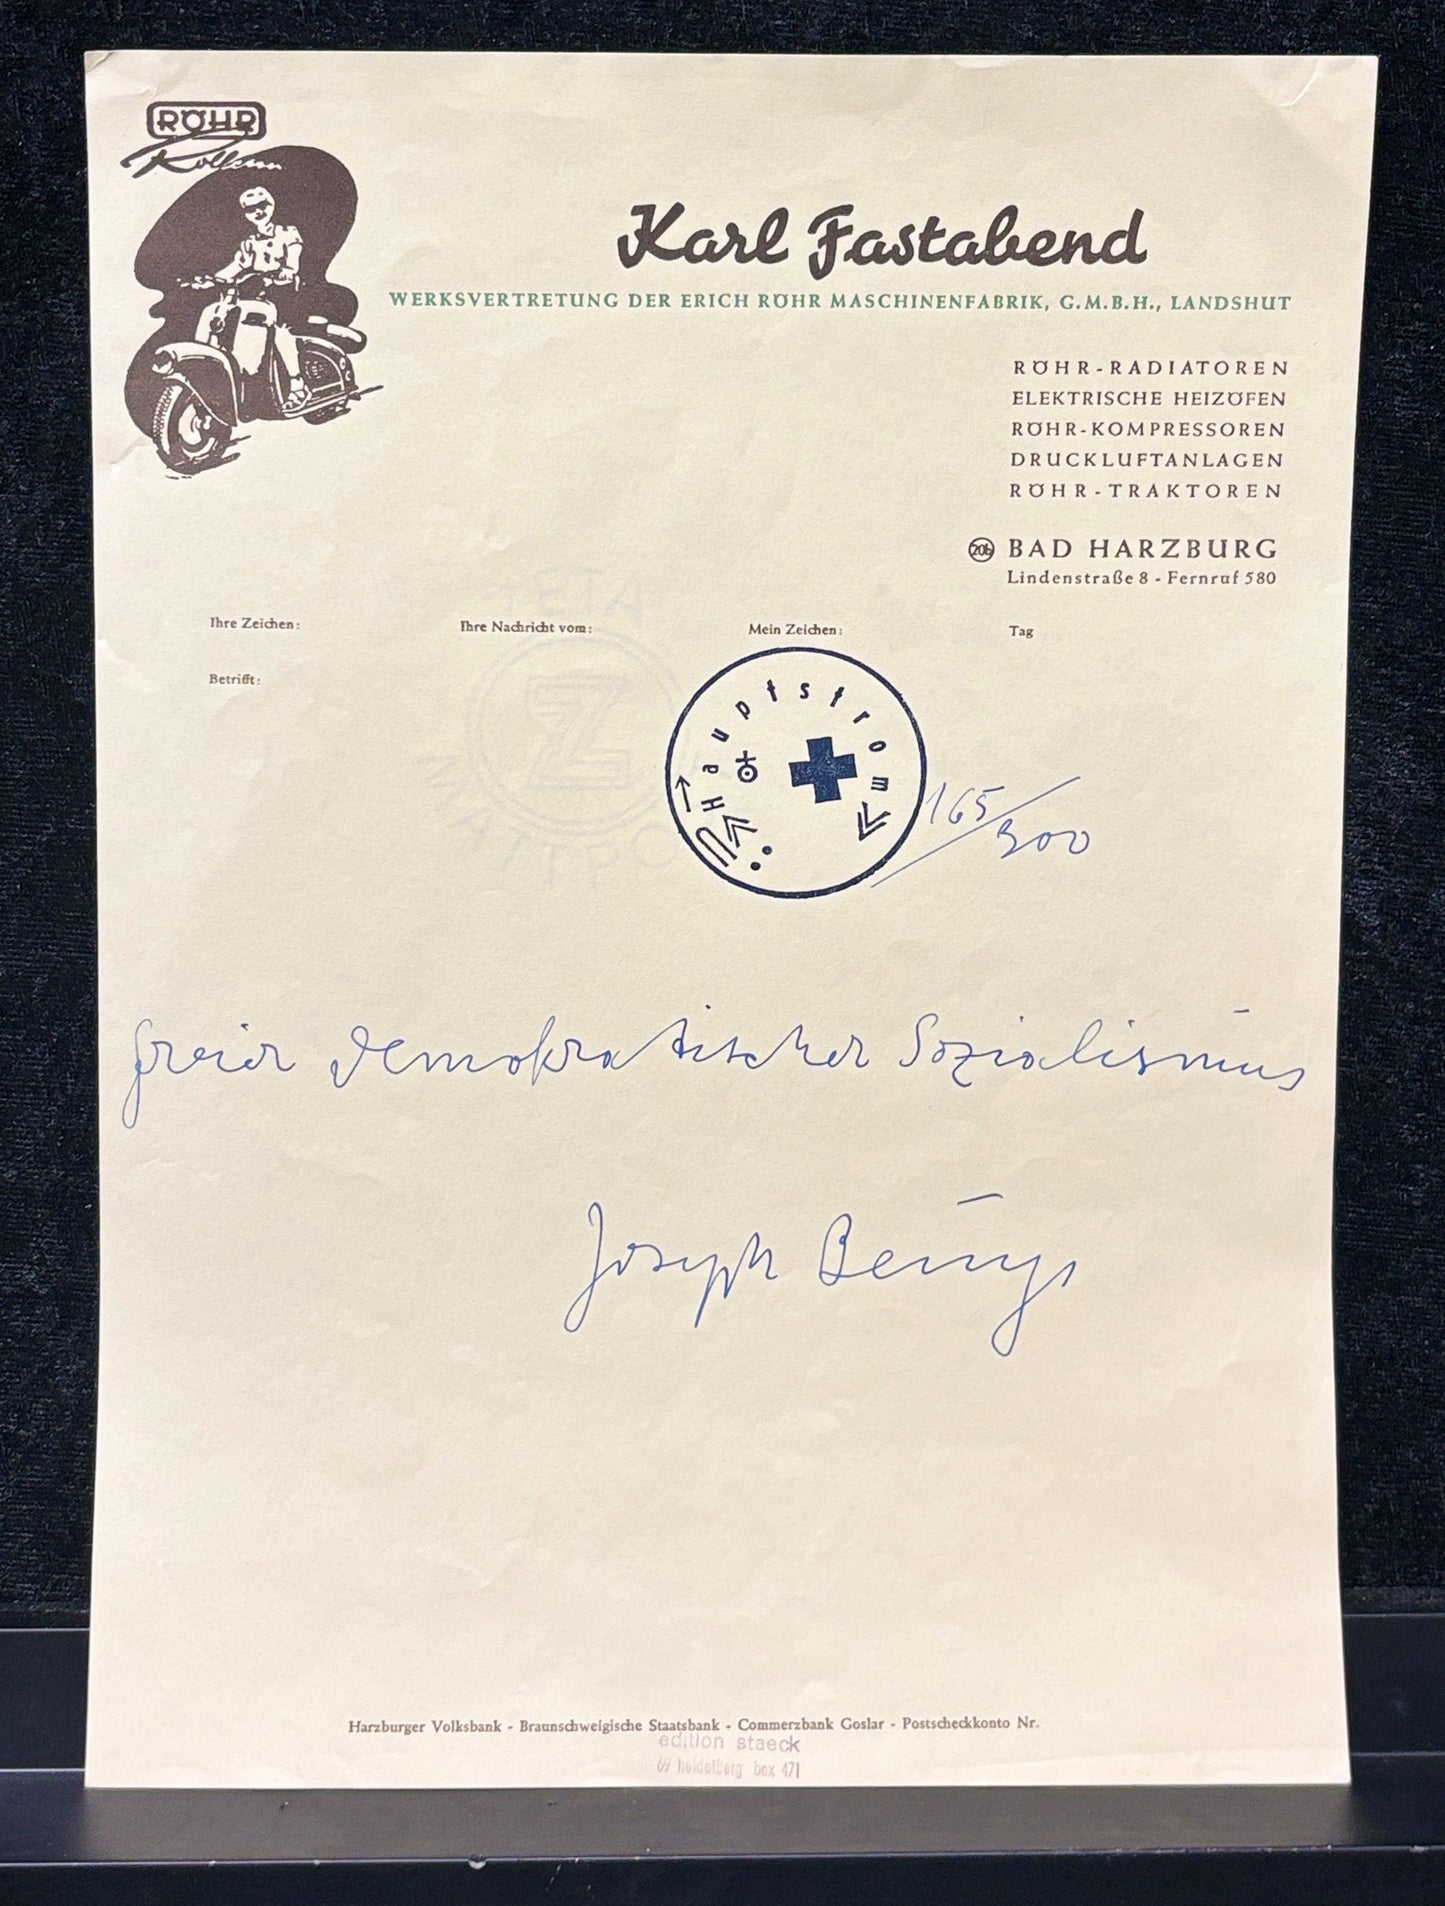 RÖHR
Karl Fastabend
WERKSVERTRETUNG DER ERICH RÖHR MASCHINENFABRIK, G.M.B.H., LANDSHUT
RÖHR-RADIATOREN
ELEKTRISCHE HEIZÖFEN
RÖHR-KOMPRESSOREN
DRUCKLUFTANLAGEN
RÖHR-TRAKTOREN
20b BAD HARZBURG
Lindenstraße 8 - Fernruf 580
Ihre Zeichen: Ihre Nachricht vom: Mein Zeichen: Tag
Betrifft:
Hauptstrom
165/300
freier demokratischer Sozialismus
Joseph Beuys
Harzburger Volksbank - Braunschweigische Staatsbank - Commerzbank Goslar - Postscheckkonto Nr.
edition staeck
69 heidelberg box 471